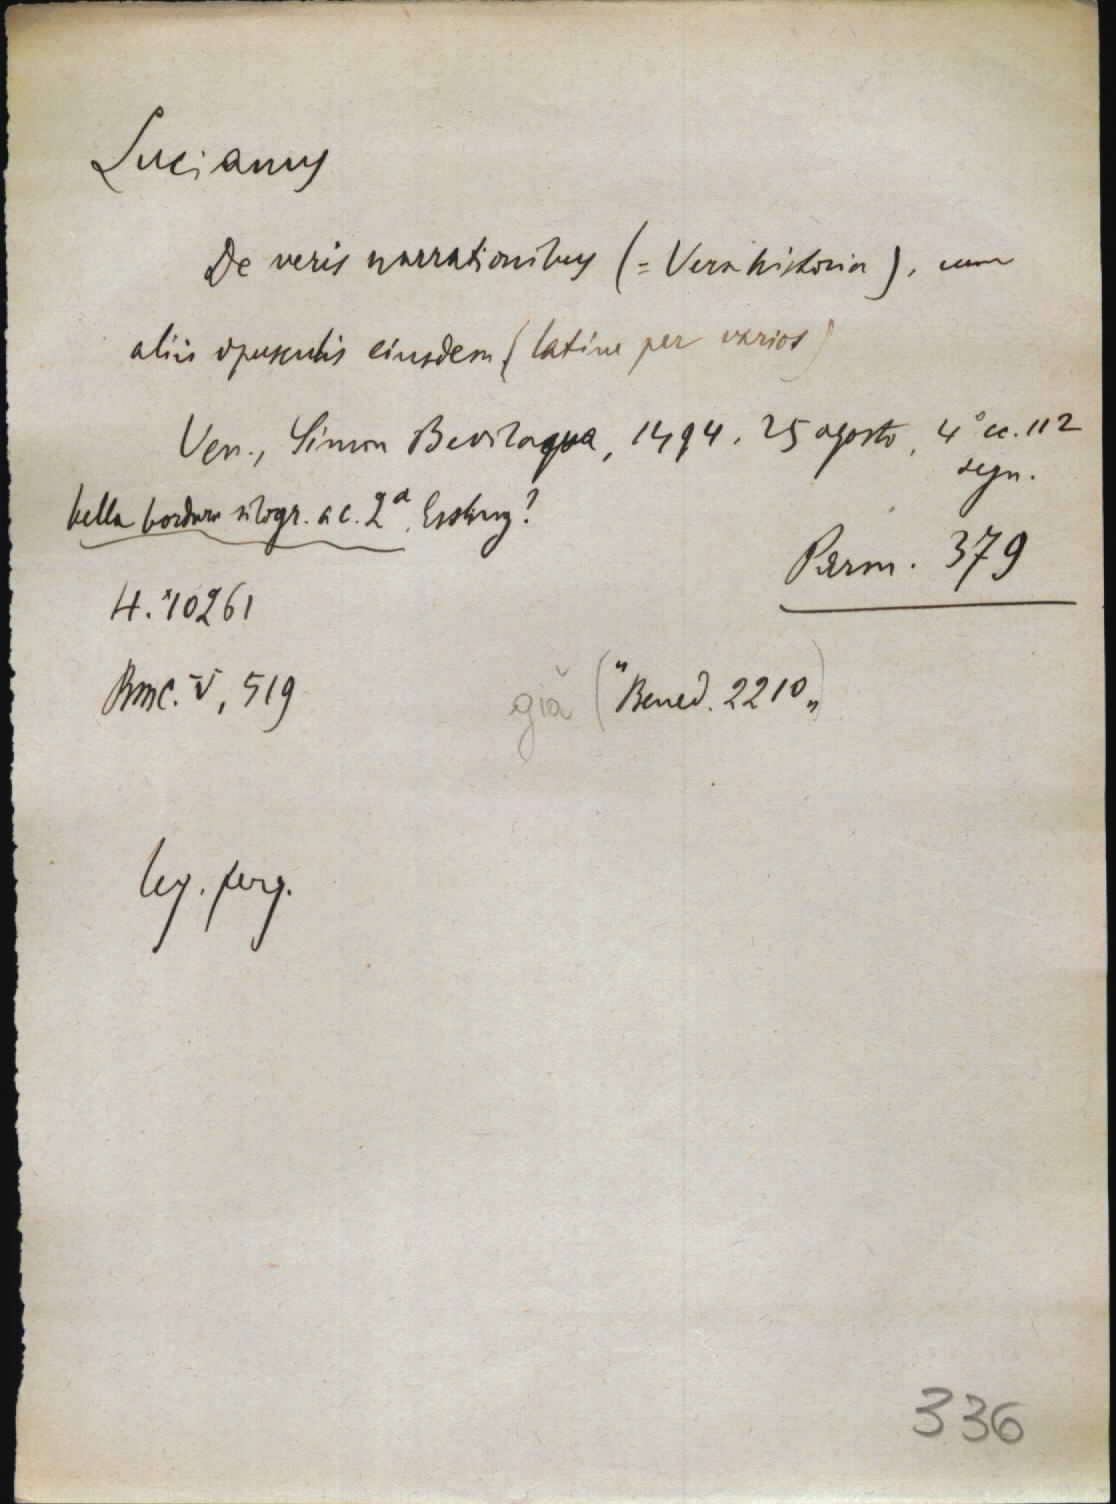 Lucianus
De veris narrationibus (= Vera historia), cum
aliis opusculis eiusdem (latine per varios)
Ven., Simon Bevilaqua, 1494. 25 agosto, 4° cc. 112
segn.
bella bordura silogr. a c. 2ª. Essling?
Parm. 379
H. *10261
BMC. V, 519
già ("Bened. 2210„)
leg. perg.
336